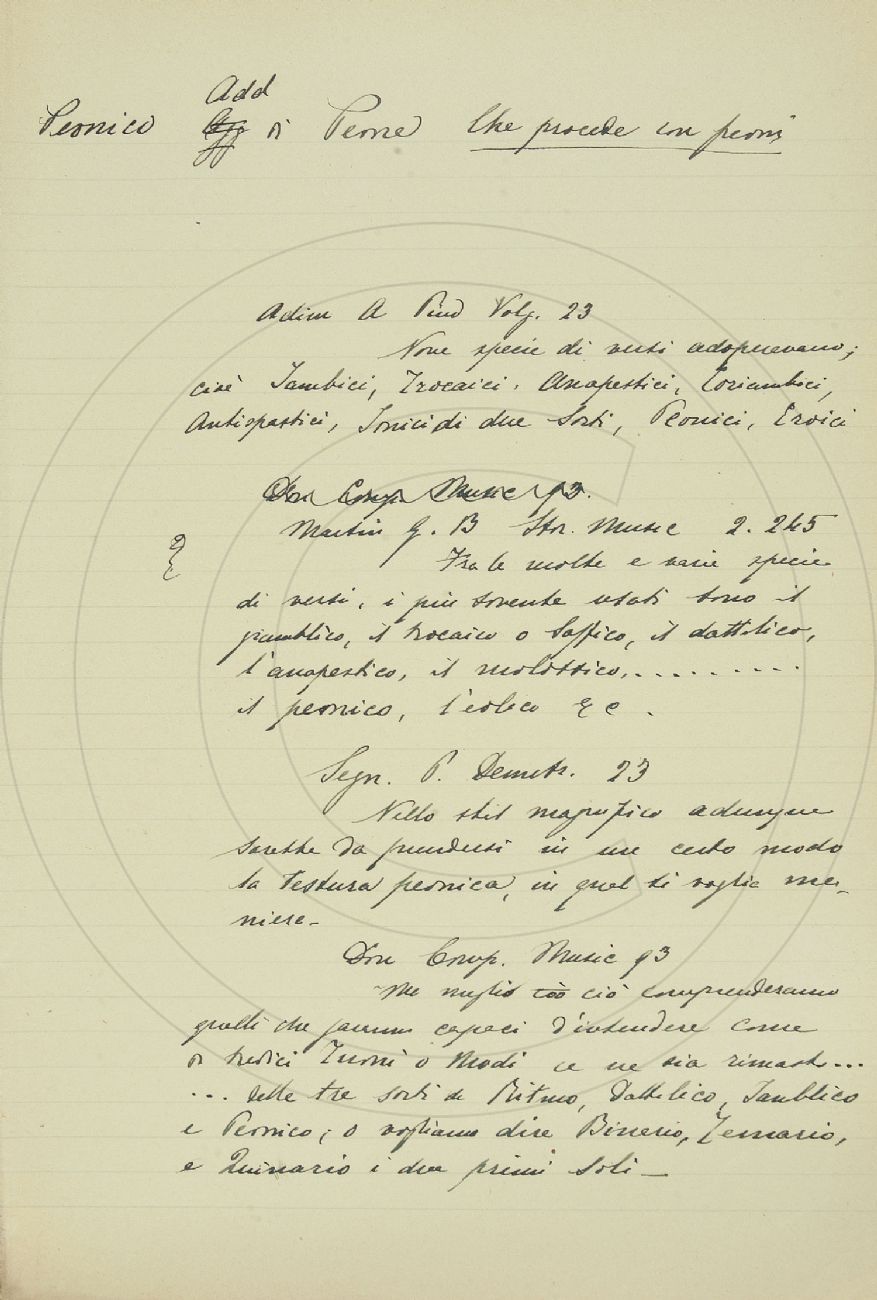 Add
Peonico Agg di Peone Che procede con peoni
Adim A Pind Volg. 23
Nove specie di versi adoperevano;
cioè Iambici, Trocaici, Anapestici, Coriambici,
Antispastici, Ionici di due Sorti, Peonici, Eroici
Don Comp Music 93.
Martin G. B Stor. Music 2. 245
Tra le molte e varie specie
di versi, i più sovente usati sono il
giamblico, il trocaico o Saffico, il dattilico,
l'anapestico, il molossico,..........
il peonico, l'eolico &c.
Segn. P. Demetr. 23
Nello stil magnifico adunque
sarebbe da prendersi in un certo modo
la testura peonica, in qual si voglia ma-
niera.
Don Comp. Music 93
Ma meglio ciò ciò comprenderanno
quelli che saranno capaci d'intendere come
di tredici Tuoni o Modi ce ne sia rimasti...
... delle tre sorti di Ritmo, Dattilico, Iamblico
e Peonico; o vogliamo dire Binerio, Ternario,
e Quinario i due primi soli —